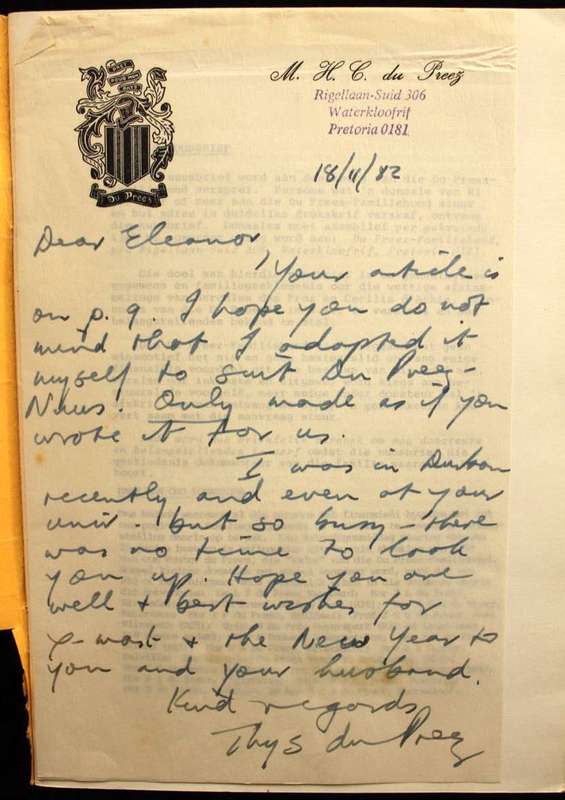 M. H. C. du Preez
Rigellaan-Suid 306
Waterkloofrif
Pretoria 0181
18/11/82
Du Preez
Dear Eleanor,
Your article is
on p. 9. I hope you do not
mind that I adapted it
myself to suit Du Preez-
Nuus. Only made as if you
wrote it for us.
I was in Durban
recently and even at your
univ. but so busy - there
was no time to look
you up. Hope you are
well + best wishes for
X-mast + the New Year to
you and your husband.
Kind regards
Thys du Preez